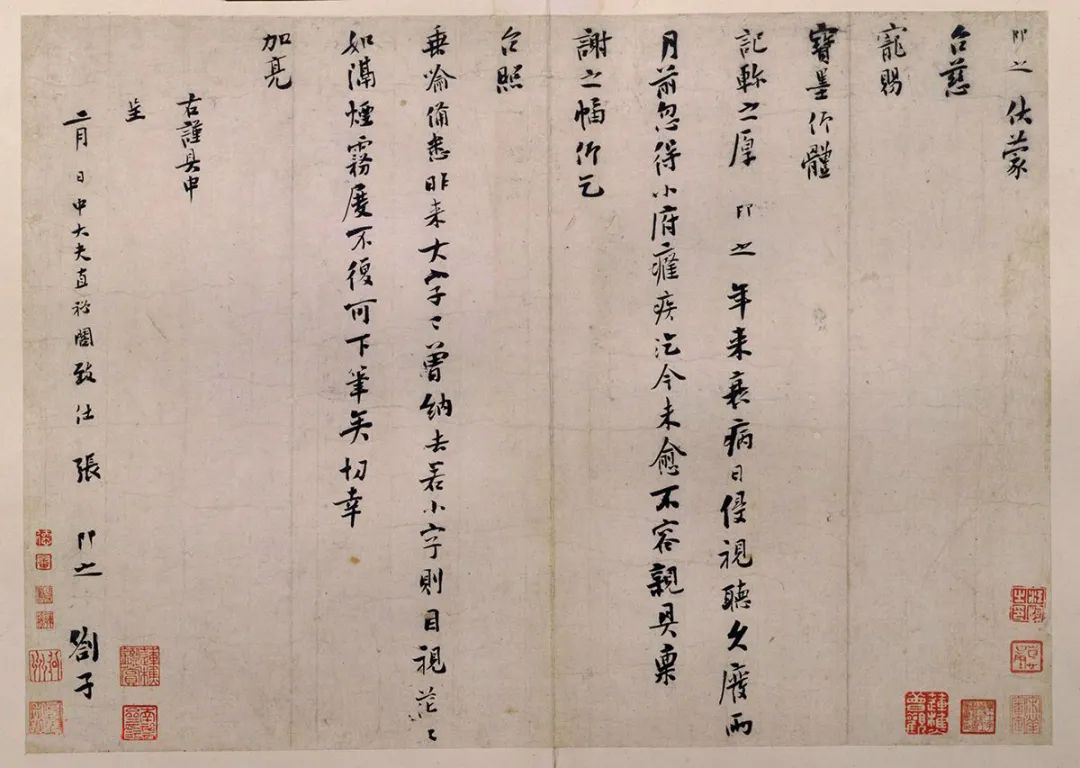 即之伏蒙
台慈
寵賜
寶墨仰體
記軫之厚即之年來衰病日侵視聽久廢兩
月前忽得小府癃疾迄今未愈不容親具稟
謝之幅仰乞
台照
垂喻備悉昨來大字已曾納去若小字則目視茫々
如隔煙霧屢不復可下筆矣切幸
加亮
右謹具申
呈
二月 日中大夫直祕閣致仕張即之劄子